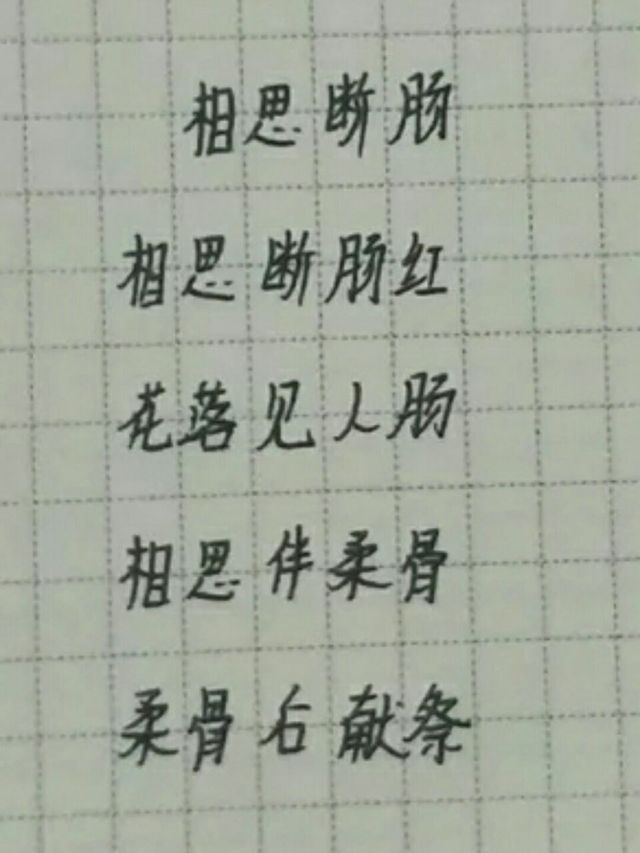 相思断肠
相思断肠红
花落见人肠
相思伴柔骨
柔骨右献祭